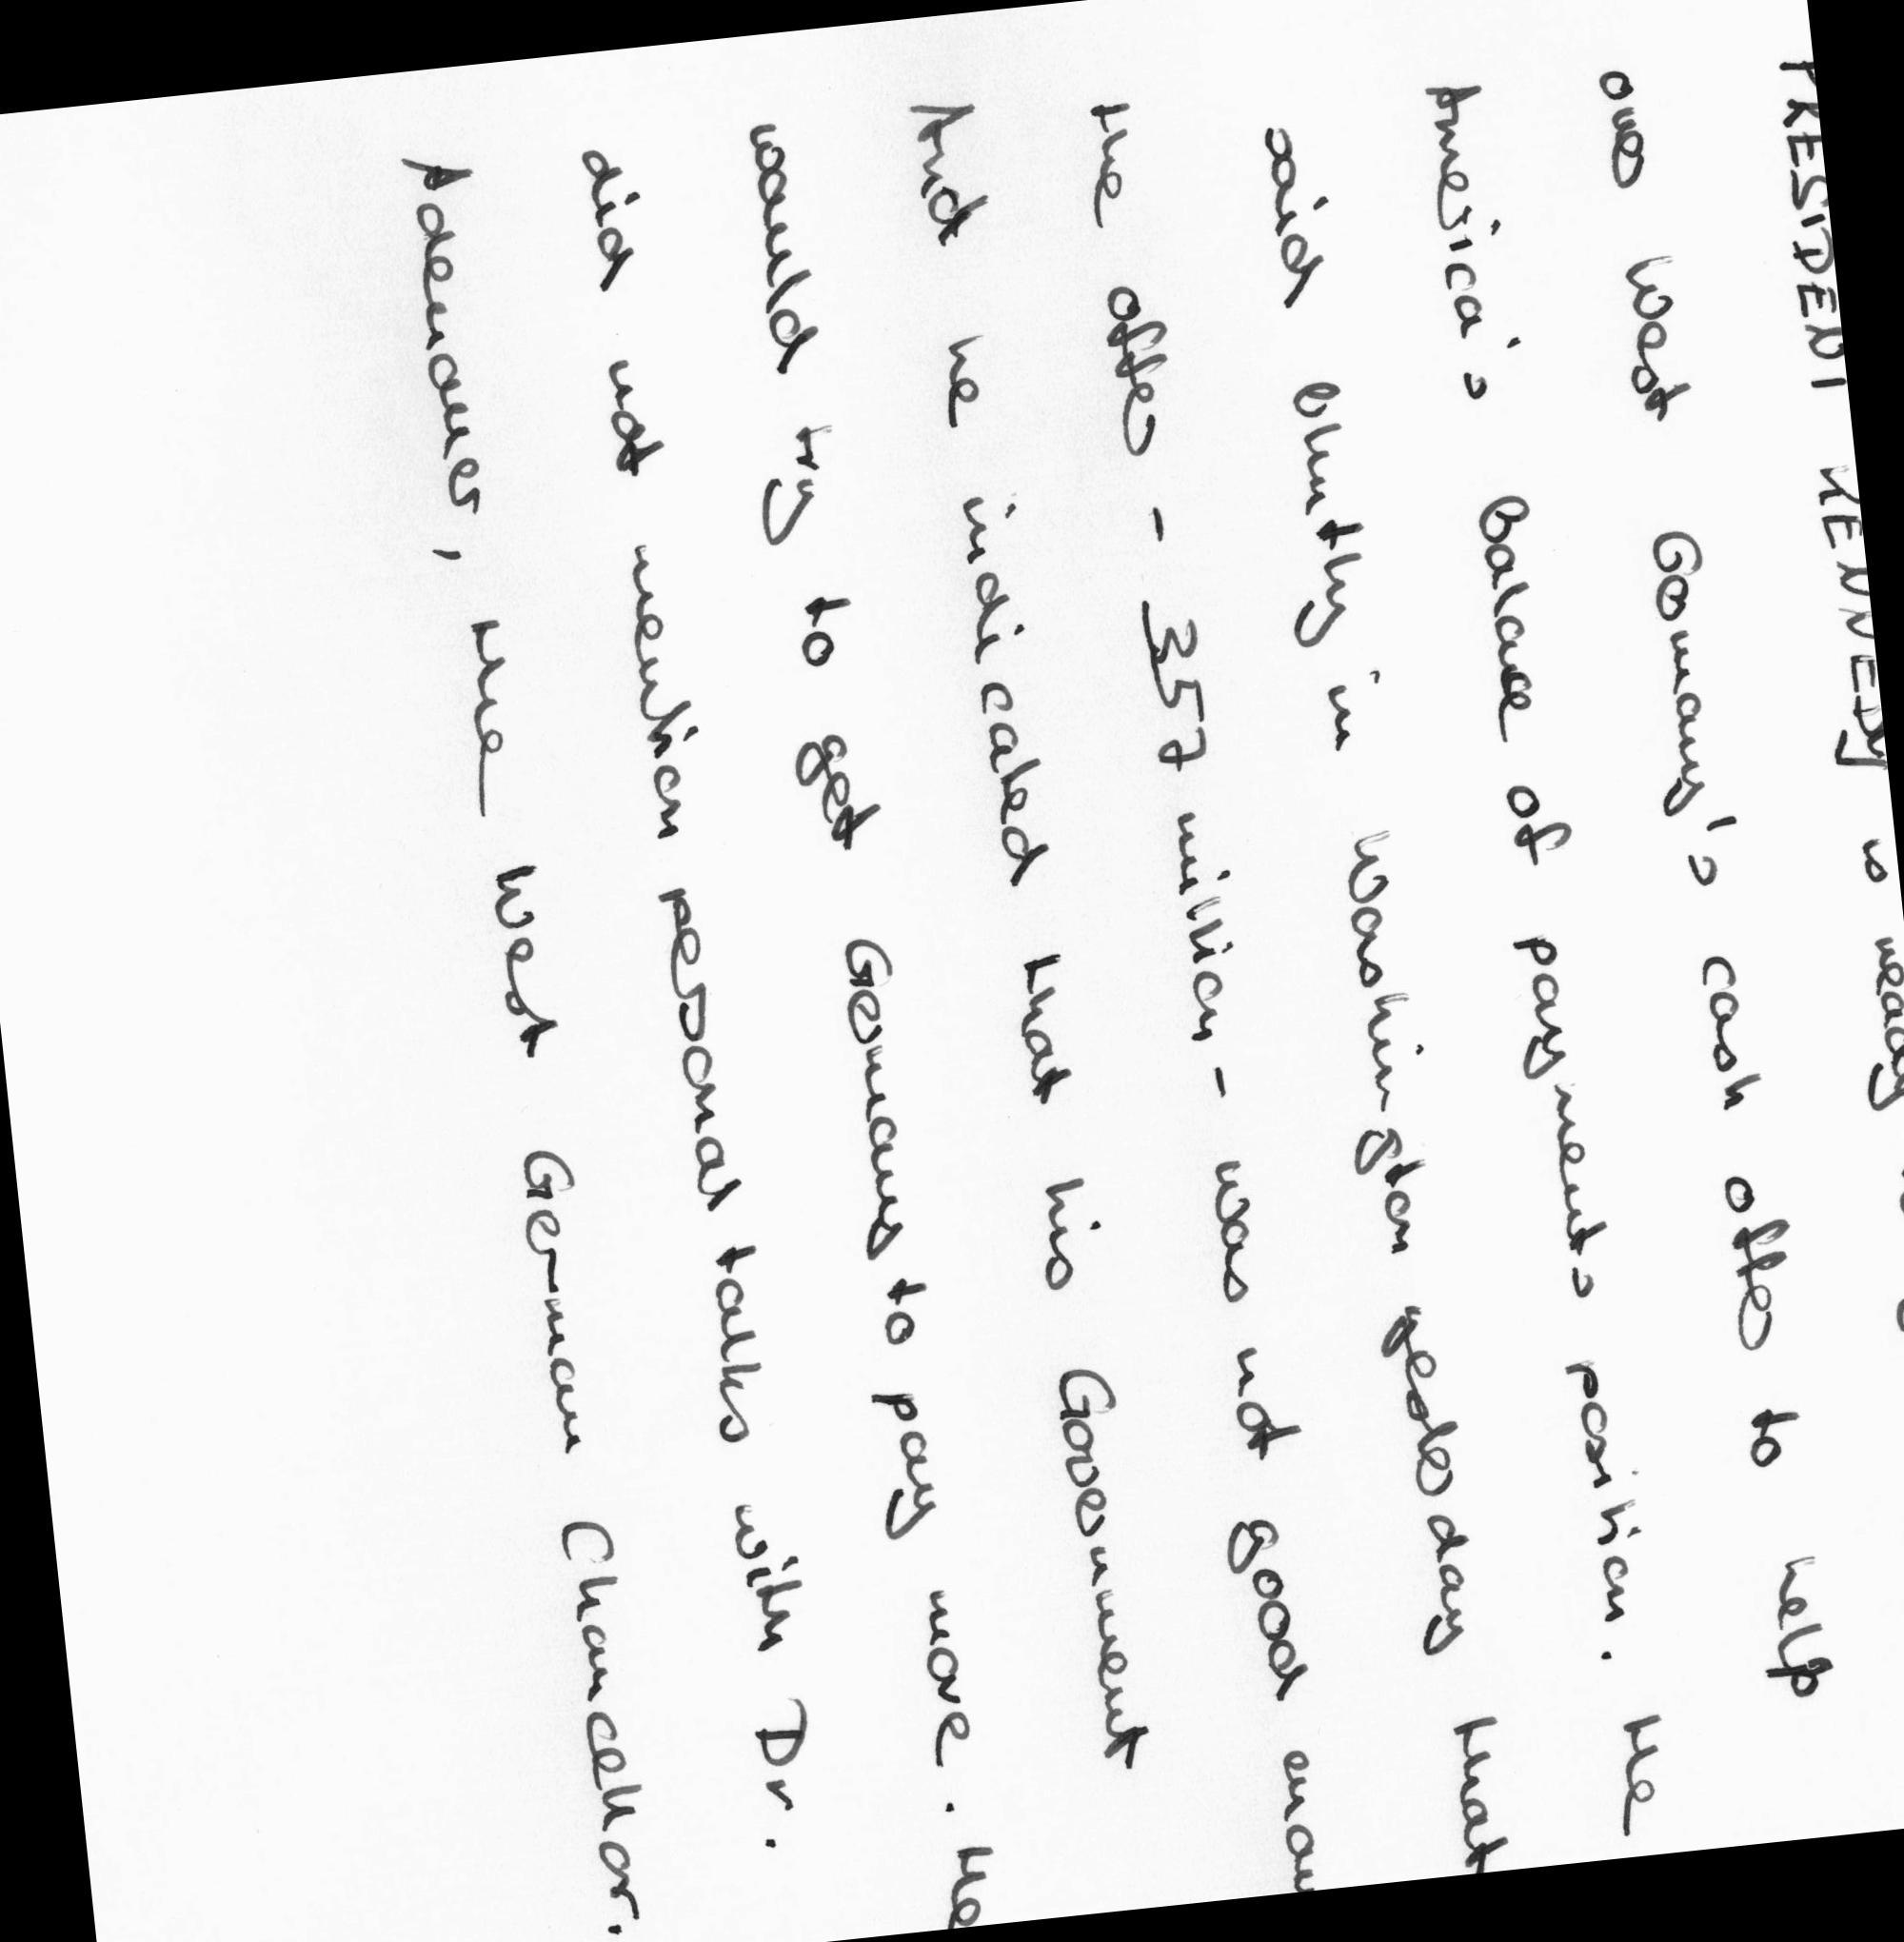 PRESIDENT KENNEDY is ready
over West Germany's cash offer to help
America's balance of payments position. He
said bluntly in Washington yesterday that
the offer - 357 million - was not good
And he indicated that his Government
would try to get Germany to pay more. He
did not mention personal talks with Dr.
Adenauer, the West German Chancellor.